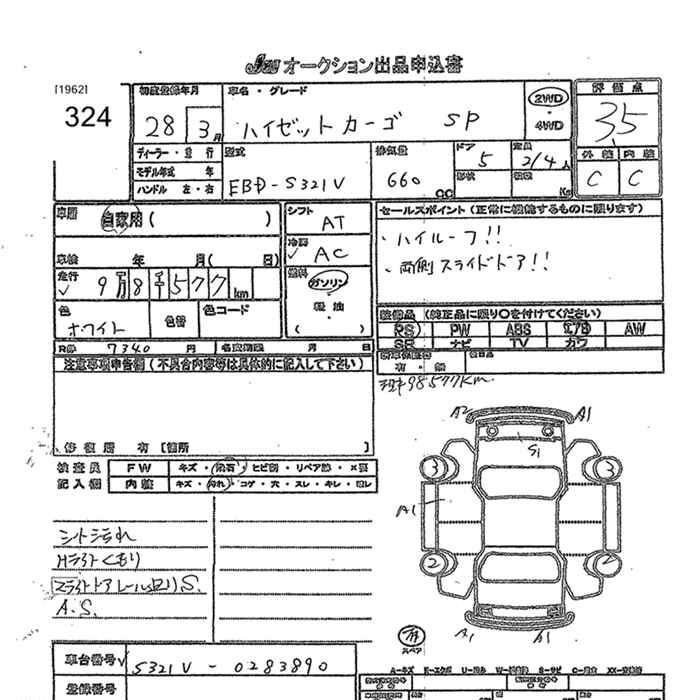 JU オークション出品申込書
[1962]
324
初度登録年月
28 3月
車名・グレード
ハイゼットカーゴ SP
2WD
・
4WD
評価点
3.5
外装 内装
C C
ディーラー・並行
モデル年式 年
ハンドル 左・右
型式
EBD-S321V
排気量
660 CC
ドア
5
形状
定員
2/4人
積載
Kg
車歴
自家用( )
車検 年 月( 日)
走行
9万8千577km
色
ホワイト
色替
色コード
シフト
AT
冷房
AC
燃料
ガソリン
軽油
( )
セールスポイント(正常に機能するものに限ります)
・ハイルーフ!!
・両側スライドドア!!
装備品 (純正品に限り○を付けてください)
PS PW ABS エアB AW
SR ナビ TV カワ
新車保証書
有・無
後日品
R券 7340 円 名変期限 月 日
注意事項申告欄(不具合内容等は具体的に記入して下さい)
修復歴 有[箇所 ]
現車98577km
検査員
記入欄
FW キズ・飛石・ヒビ割・リペア跡・X要
内装 キズ・汚れ・コゲ・穴・スレ・キレ・欠レ
シート汚れ
Hライトくもり
スライドドアレール回りS.
A.S.
A2 A1
S1
3 3
A1
2 2
A1 A1
有
スペア
車台番号 S321V-0283890
登録番号
A-キズ E-エクボ U-凹み W-補修跡 S-サビ C-腐食 XX-交換済